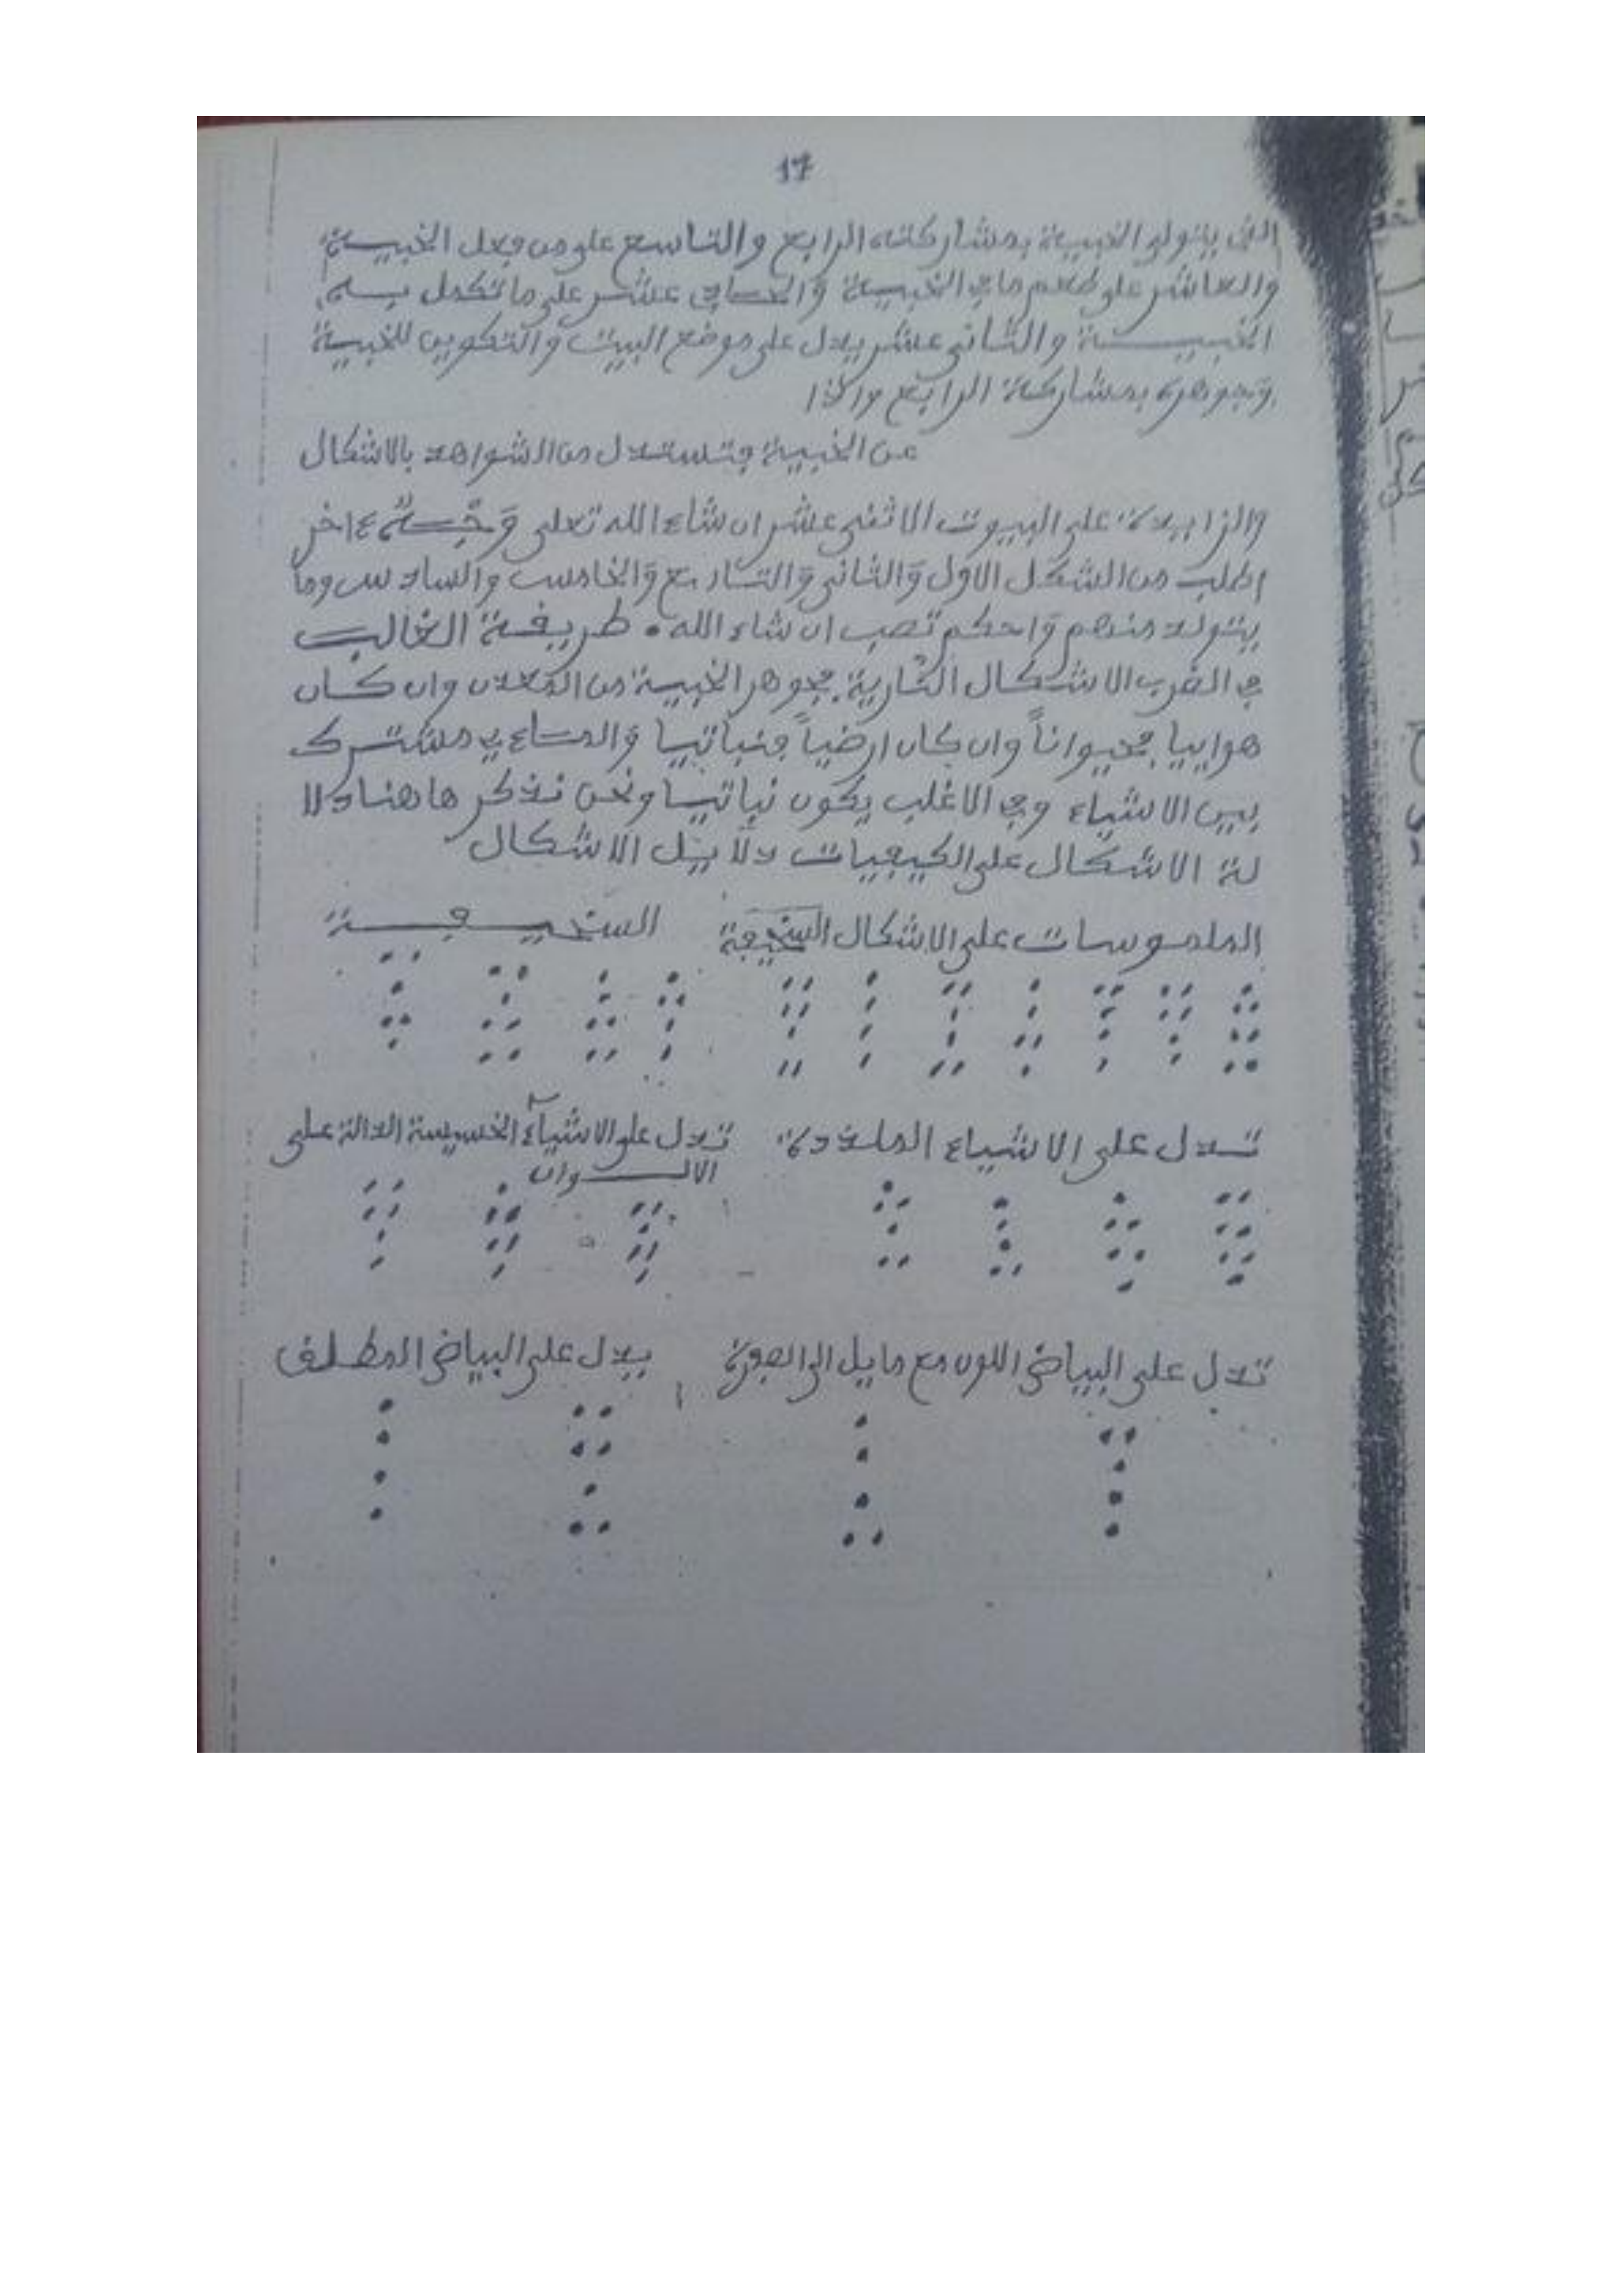 17
الذي يتولى الخبيئة بمشاركته الرابع والتاسع على من فعل الخبيسة
والعاشر على طعم ما في الخبيسة والحادي عشر على ما تكمل بسه
الخبيسة والثاني عشر يدل على موضع البيت والتكوين للخبيسة
وجوهره بمشاركة الرابع
عن الخبيئة فتستدل من الشواهد بالاشكال
على البيوت الاثنى عشر ان شاء الله تعلى
اطلب من الشكل الاول والثاني والخامس والسادس وما
يتولد منهم واحكم تصب ان شاء الله • طريقة الغالب
في الضرب الاشكال النارية فجوهر الخبيسة من المعدن وان كان
هواييا فحيواناً وان كان ارضياً فنباتيا مشترك
بين الاشياء وفي الاغلب يكون نباتيا ونحن نذكر هاهنا دلا
لة الاشكال على الكيفيات دلايل الاشكال
الملموسات على الاشكال السخيفة السخيفة
تدل على الاشياء تدل على الاشياء الخسيسة الدالة على
الالوان
تدل على البياض اللون مع مايل الى الصفرة يدل على البياض المطلق